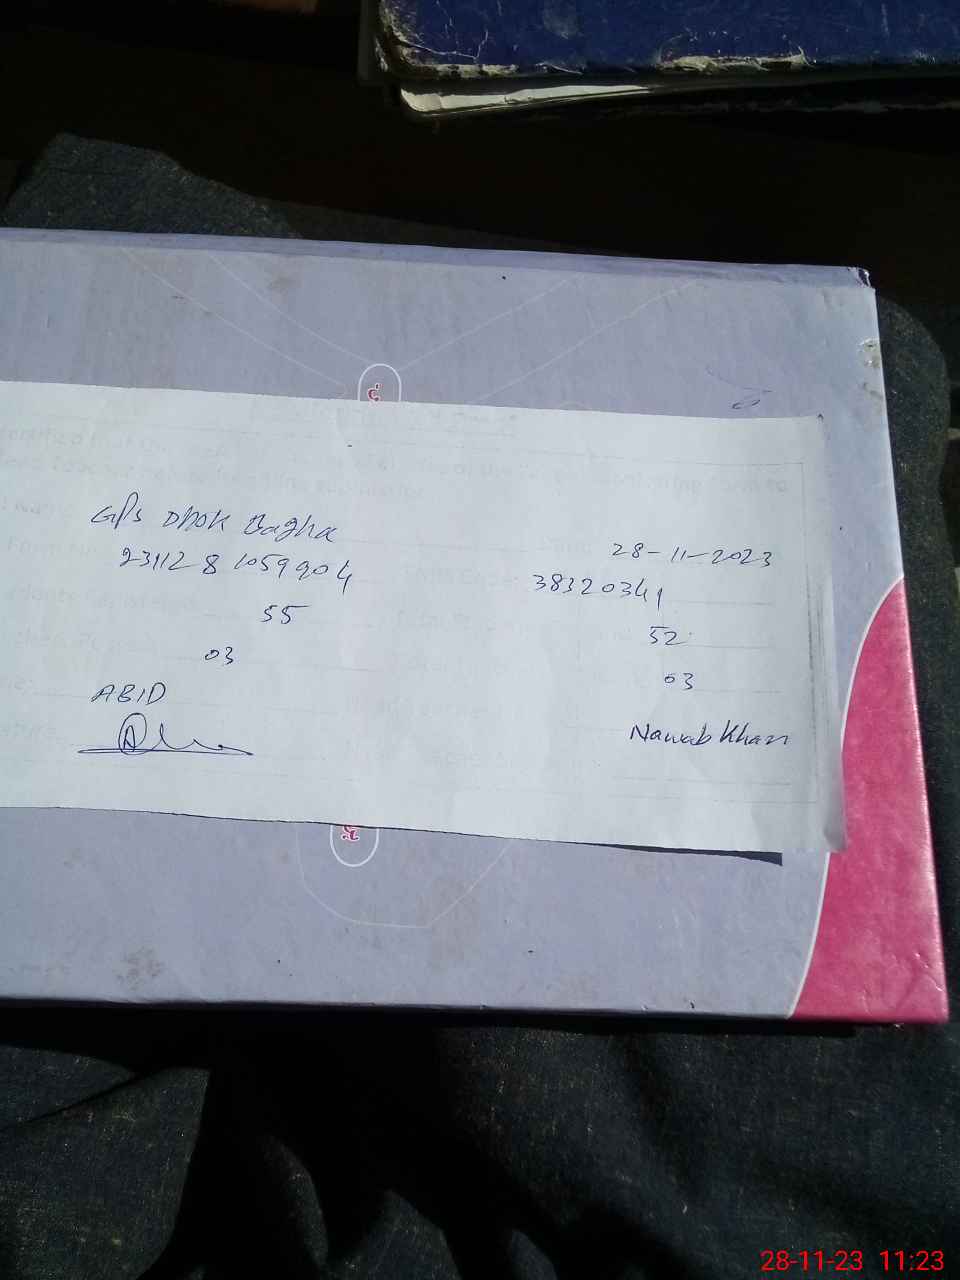 GPS Dhok Bagha 28-11-2023
231128 1059904 38320341
55 52
03 03
ABID
Nawab Khan
28-11-23 11:23